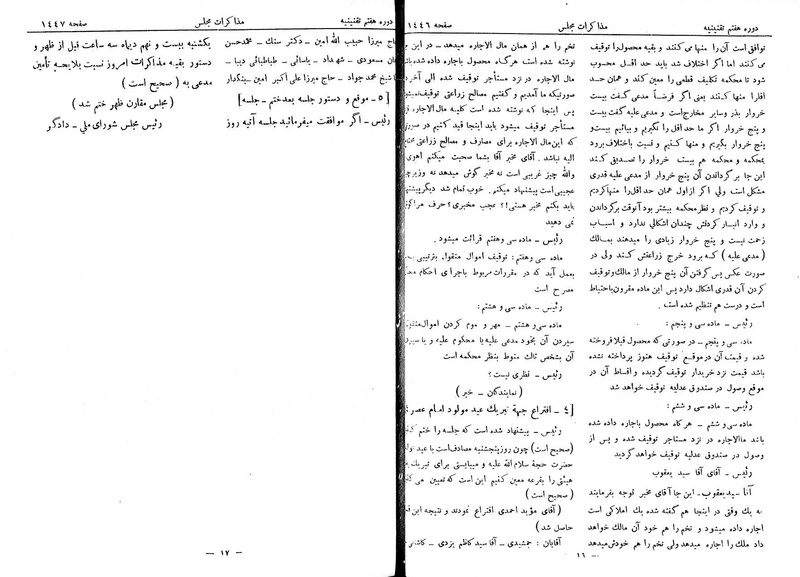 دوره هفتم تقنینیه
مذاکرات مجلس
صفحه ١٤٤٦
توافق است آن را منها می کنند و بقیه محصول را توقیف
می کنند اما اگر اختلاف شد باید حد اقل محسوب
شود تا محکمه تکلیف قطعی را معین کند و همان حد
اقل را منها کنند یعنی اگر فرضاً مدعی گفت بیست
خروار بذر وسایر مخارج است و مدعی علیه گفت بیست
و پنج خروار اگر ما حد اقل را نگیریم و بیائیم بیست و
پنج خروار بگیریم و منها کنیم و نسبت باختلاف برود
بمحکمه و محکمه هم بیست خروار را تصدیق کند
این جا بر گرداندن آن پنج خروار از مدعی علیه قدری
مشکل است ولی اگر از اول همان حد اقل را منها کردیم
و توقیف کردیم و نظر محکمه بیشتر بود آنوقت برگرداندن
و وارد انبار کردنش چندان اشکالی ندارد و اسباب
زحمت نیست و پنج خروار زیادی را میدهند بمالك
( مدعی علیه ) که برود خرج زراعتش کند ولی در
صورت عکس پس گرفتن آن پنج خروار از مالك وتوقیف
کردن آن قدری اشکال دارد پس این ماده مقرون باحتیاط
است و درست هم تنظیم شده است .
رئیس - ماده سی و پنجم :
ماده سی و پنجم - در صورتی که محصول قبلا فروخته
شده و قیمت آن در موقع توقیف هنوز پرداخته نشده
باشد قیمت نزد خریدار توقیف گردیده و اقساط آن در
موقع وصول در صندوق عدلیه توقیف خواهد شد
رئیس - ماده سی و ششم :
ماده سی و ششم - هر گاه محصول باجاره داده شده
باشد مال الاجاره در نزد مستأجر توقیف شده و پس از
وصول در صندوق عدلیه توقیف خواهد گردید
رئیس - آقای آقا سید یعقوب
آقا سید یعقوب - این جا آقای مخبر توجه بفرمایند
یك وقتی در اینجا هم گفته شده یك املاکی است
اجاره داده میشود و تخم را هم خود آن مالك خواهد
داد ملك را اجاره میدهد ولی تخم را هم خودش میدهد
تخم را هم از همان مال الاجاره میدهد - در این
نوشته شده است هر گاه محصول باجاره داده شده
مال الاجاره در نزد مستأجر توقیف شده الی آخر
صورتیکه ما آمدیم و گفتیم مصالح زراعتی توقیف
پس اینجا که نوشته شده است کلیه مال الاجاره
مستأجر توقیف میشود باید اینجا قید کنیم در
که این مال الاجاره برای مصارف و مصالح زراعتی
الیه نباشد . آقای مخبر آقا بشما صحبت میکنم
والله چیز غریبی است نه مخبر گوش میدهد نه
عجیبی است پیشنهاد میکنم . خوب تمام شد دیگر
باید بکنم مخبر هستی !؟ عجب مخبری ؟ حرف
نمی دهید
رئیس - ماده سی و هفتم قرائت میشود .
ماده سی و هفتم : توقیف اموال منقول بترتیبی
بعمل آید که در مقررات مربوط باجرای احکام
مصرح است
رئیس - ماده سی و هشتم :
ماده سی و هشتم - مهر و موم کردن اموال
سپردن آن بخود مدعی علیه یا محکوم علیه و یا
آن بشخص ثالث منوط بنظر محکمه است
رئیس - نظری نیست ؟
( نمایندگان - خیر )
[ ٤ - اقتراع جهة تبریك عید مولود امام عصر
رئیس - پیشنهاد شده است که جلسه را ختم
(صحیح است) چون روز پنجشنبه مصادف است با عید
حضرت حجة سلام الله علیه و میبایستی برای تبریك
هیئتی را بقرعه معین کنیم این است که تعیین می
( صحیح است )
( آقای مؤید احمدی اقتراع نمودند و نتیجه این
حاصل شد )
آقایان : جمشیدی - آقا سید کاظم یزدی - کاشانی
- ١٦ -
دوره هفتم تقنینیه
مذاکرات مجلس
صفحه ١٤٤٧
حاج میرزا حبیب الله امین - دکتر سنك - محمد حسن
مسعودی - شهداد - یاسائی - طباطبائی دیبا
شیخ محمد جواد - حاج میرزا علی اکبر امین -
[ ٥ - موقع و دستور جلسه بعد ختم - جلسه ]
رئیس - اگر موافقت میفرمائید جلسه آتیه روز
یکشنبه بیست و نهم دیماه سه ساعت قبل از ظهر و
دستور بقیه مذاکرات امروز نسبت بلایحه تأمین
مدعی به ( صحیح است )
( مجلس مقارن ظهر ختم شد )
رئیس مجلس شورای ملی - دادگر
- ١٧ -